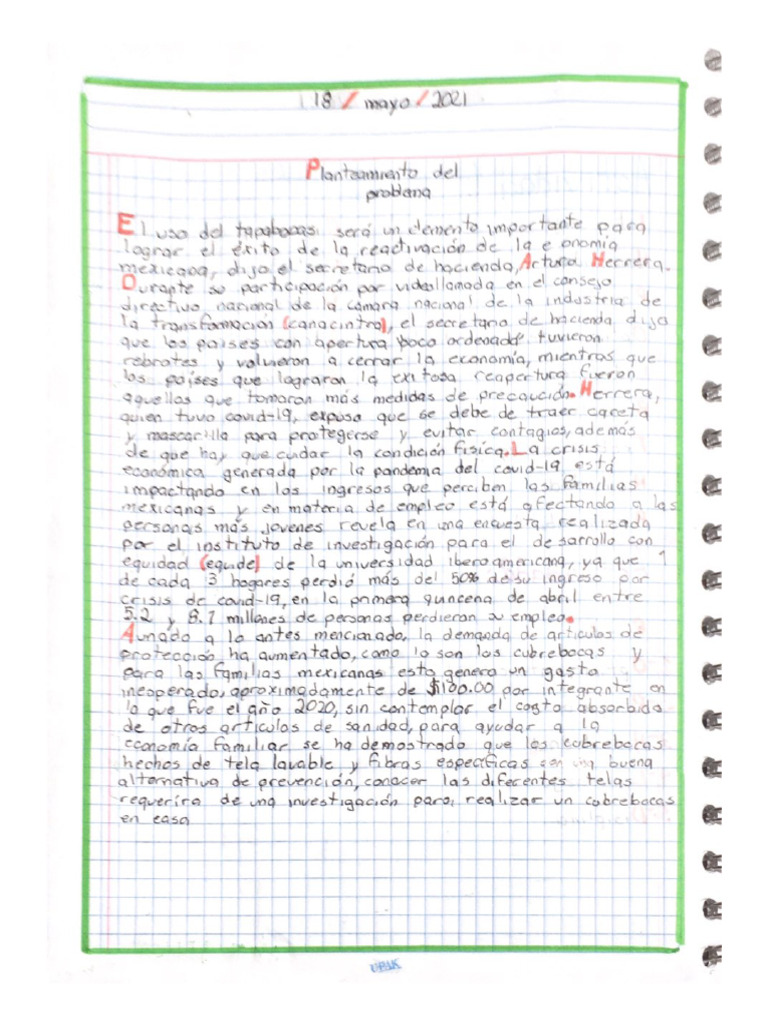 18 / mayo / 2021
Planteamiento del
problema
El uso del tapabocas será un elemento importante para
lograr el éxito de la reactivación de la e onomía
mexicana, dijo el secretario de hacienda, Arturo Herrera.
Durante su participación por videollamada en el consejo
directivo nacional de la cámara nacional de la industria de
la transformación (canacintra), el secretario de hacienda dijo
que los países con apertura "poco ordenada" tuvieron
rebrotes y volvieron a cerrar la economía, mientras que
los países que lograron la exitosa reapertura fueron
aquellos que tomaron más medidas de precaución. Herrera,
quien tuvo covid-19, expuso que se debe de traer careta
y mascarilla para protegerse y evitar contagios, además
de que hay que cuidar la condición física. La crisis
económica generada por la pandemia del covid-19 está
impactando en los ingresos que perciben las familias
mexicanas y en materia de empleo está afectando a las
personas más jovenes revela en una encuesta realizada
por el instituto de investigación para el desarrollo con
equidad (equide) de la universidad iberoamericana, ya que 1
de cada 3 hogares perdió más del 50% de su ingreso por
crisis de covid-19, en la primera quincena de abril entre
5.2 y 8.1 millones de personas perdieron su empleo.
Aunado a lo antes mencionado, la demanda de articulos de
protección ha aumentado, como lo son los cubrebocas y
para las familias mexicanas esto genero un gasto
inesperado, aproximadamente de $100.00 por integrante en
lo que fue el año 2020, sin contemplar el costo absorbido
de otros articulos de sanidad, para ayudar a la
economía familiar se ha demostrado que los cubrebocas
hechos de tela lavable y fibras especificas son una buena
alternativa de prevención, conocer las diferentes telas
requerira de una investigación para, realizar un cobrebocas
en casa